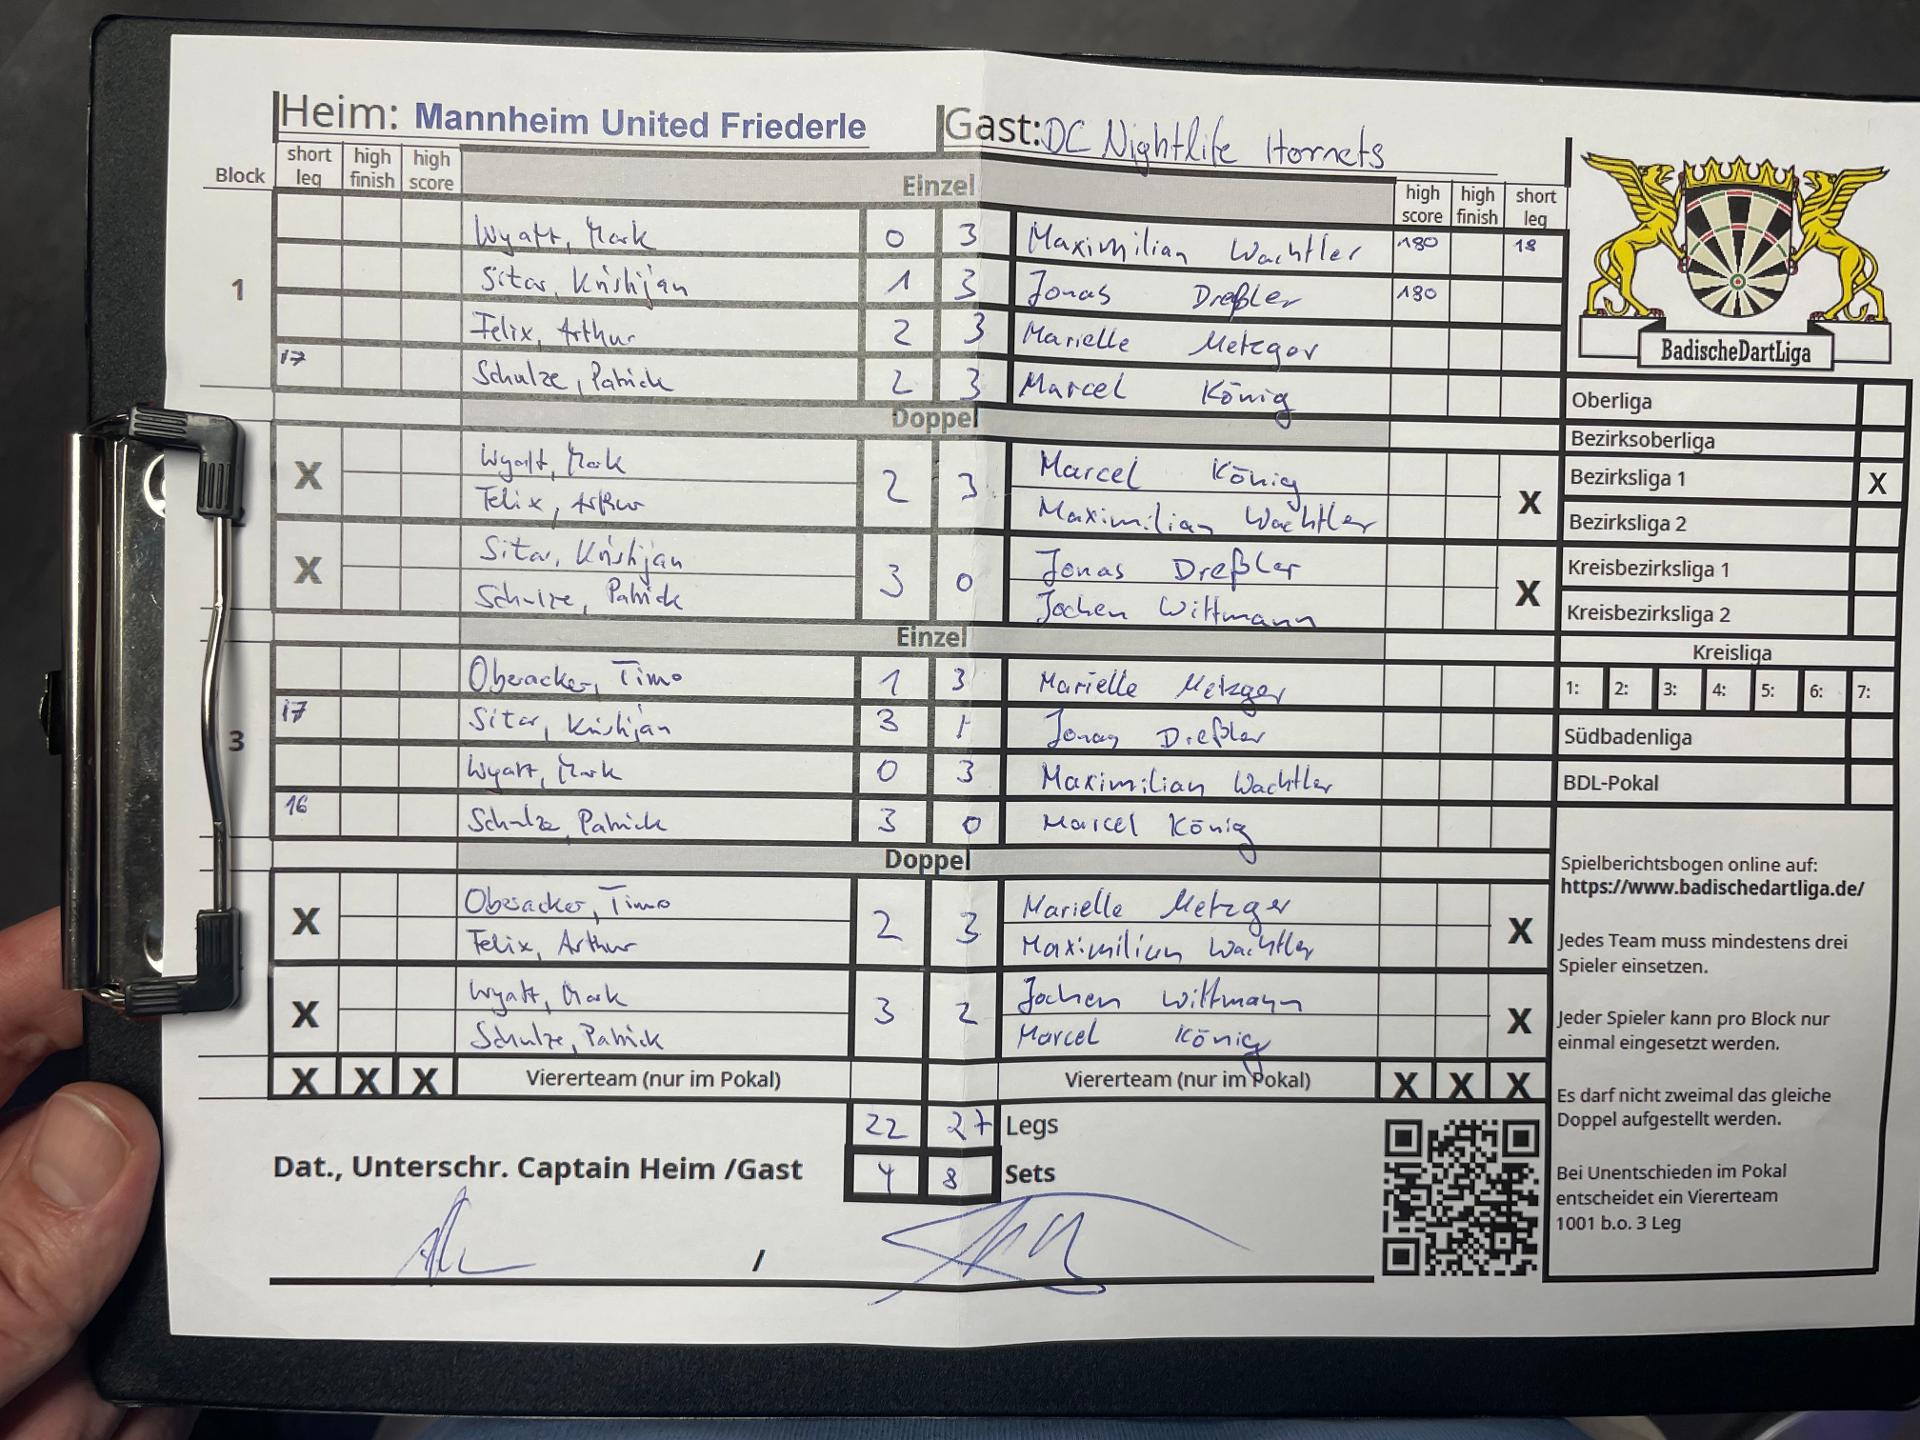 Heim: Mannheim United Friederle Gast: DC Nightlife Hornets
Block short leg high finish high score Einzel high score high finish short leg
Wyatt, Mark 0 3 Maximilian Wachtler 180 18
1 Sitar, Kristijan 1 3 Jonas Dreßler 180
Felix, Arthur 2 3 Marielle Metzger
17 Schulze, Patrick 2 3 Marcel König
Doppel
X Wyatt, Mark 2 3 Marcel König X
Felix, Arthur Maximilian Wachtler
X Sitar, Kristijan 3 0 Jonas Dreßler X
Schulze, Patrick Jochen Wittmann
Einzel
Oberacker, Timo 1 3 Marielle Metzger
3 17 Sitar, Kristijan 3 1 Jonas Dreßler
Wyatt, Mark 0 3 Maximilian Wachtler
16 Schulze, Patrick 3 0 Marcel König
Doppel
X Oberacker, Timo 2 3 Marielle Metzger X
Felix, Arthur Maximilian Wachtler
X Wyatt, Mark 3 2 Jochen Wittmann X
Schulze, Patrick Marcel König
X X X Viererteam (nur im Pokal) Viererteam (nur im Pokal) X X X
22 27 Legs
Dat., Unterschr. Captain Heim /Gast 4 8 Sets
/
BadischeDartLiga
Oberliga
Bezirksoberliga
Bezirksliga 1 X
Bezirksliga 2
Kreisbezirksliga 1
Kreisbezirksliga 2
Kreisliga
1: 2: 3: 4: 5: 6: 7:
Südbadenliga
BDL-Pokal
Spielberichtsbogen online auf:
https://www.badischedartliga.de/
Jedes Team muss mindestens drei
Spieler einsetzen.
Jeder Spieler kann pro Block nur
einmal eingesetzt werden.
Es darf nicht zweimal das gleiche
Doppel aufgestellt werden.
Bei Unentschieden im Pokal
entscheidet ein Viererteam
1001 b.o. 3 Leg